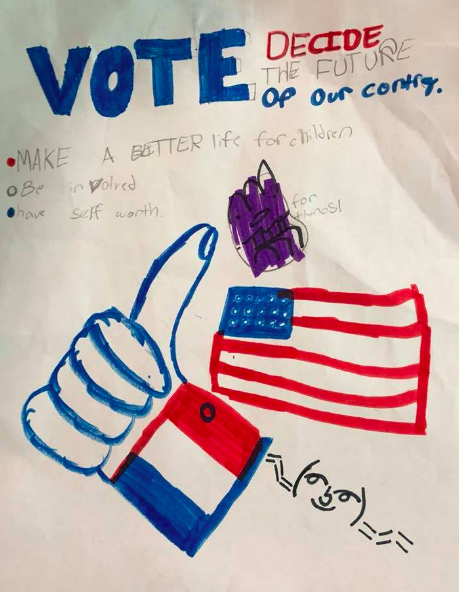 VOTE
DECIDE
THE FUTURE
OF OUR contry.
•MAKE A BETTER life for children
○Be involved
•have self worth.
for
thnos!